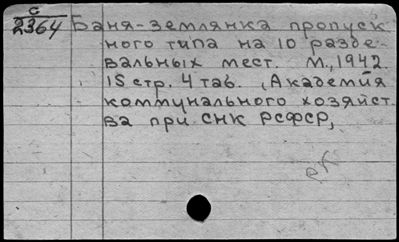 С
2364 Баня-землянка пропуск
ного типа на 10 разде-
вальных мест. М., 1942
15 стр. 4 таб. (Академия
коммунального хозяйст
ва при СНК РСФСР,